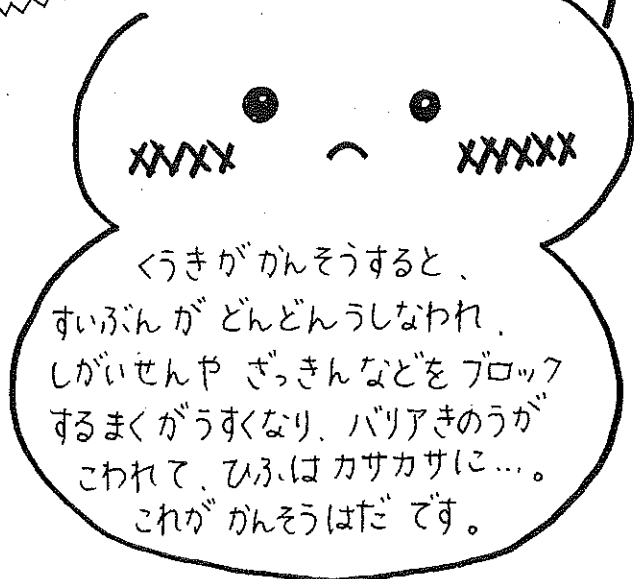 くうきが かんそうすると、
すいぶんが どんどんうしなわれ、
しがいせんや ざっきんなどを ブロック
するまくがうすくなり、バリアきのうが
こわれて、ひふは カサカサに…。
これが かんそうはだ です。